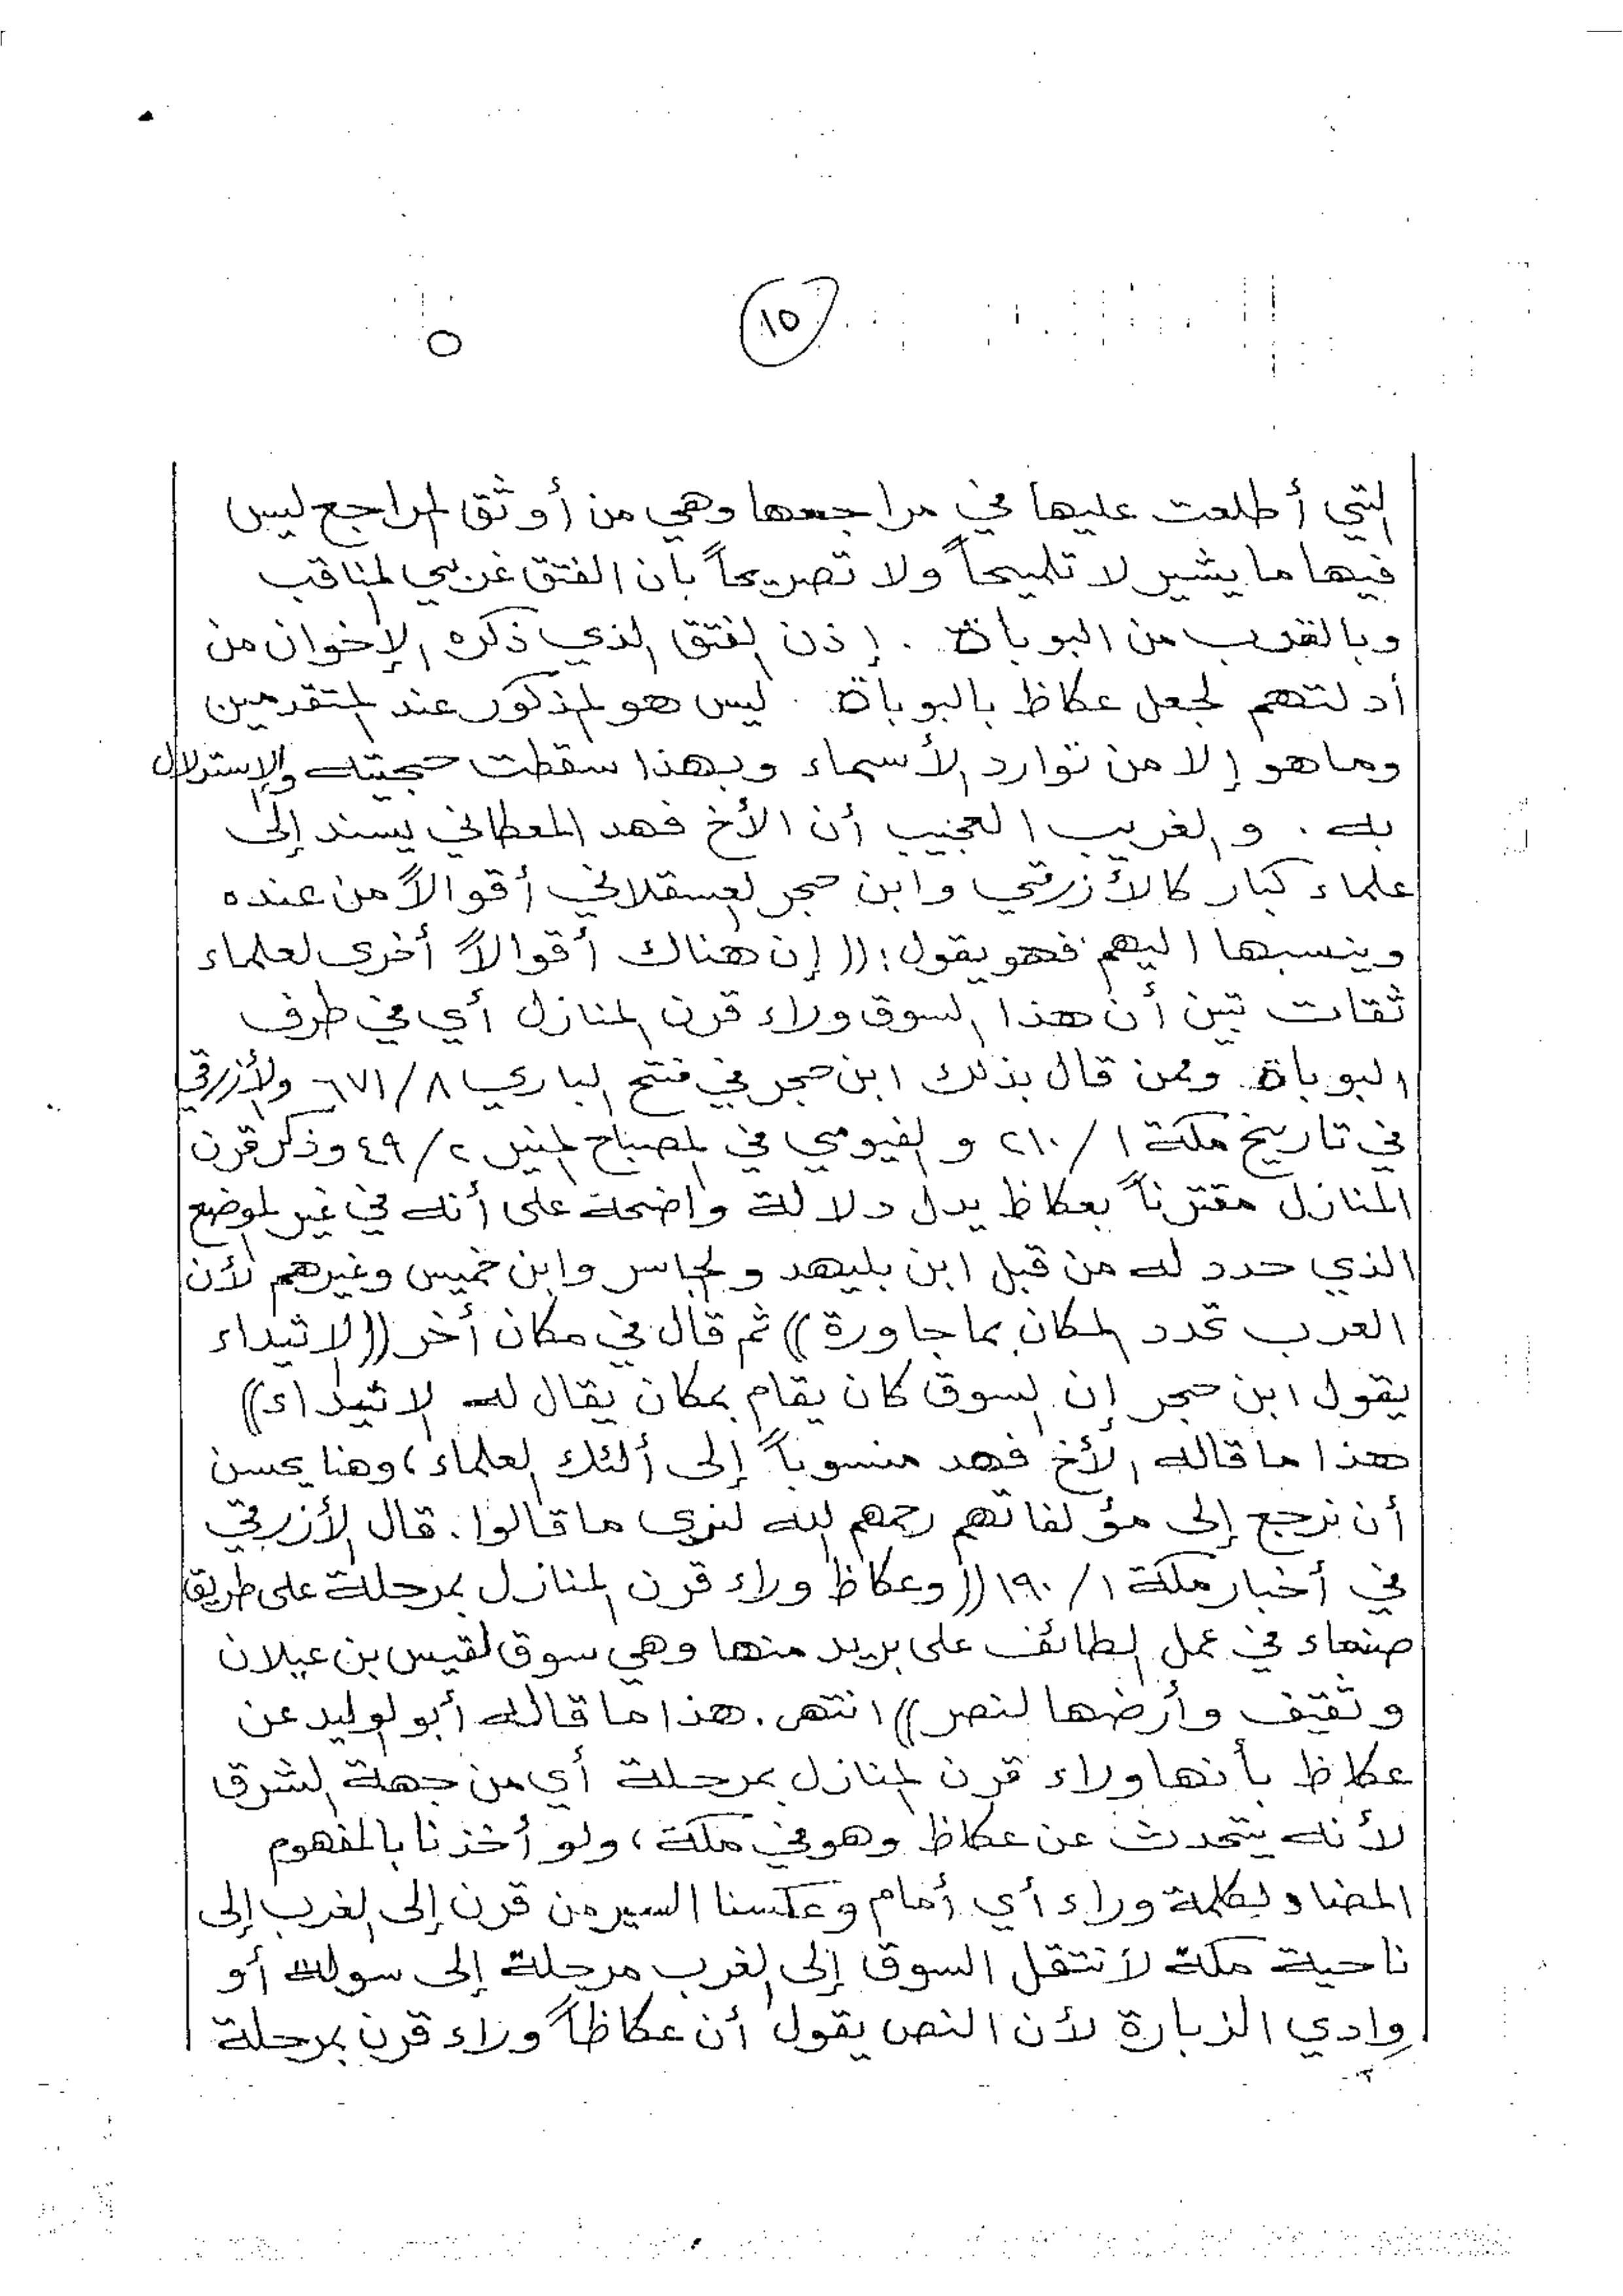 ١٥
٥
التي أطلعت عليها في مراجعها وهي من أوثق المراجع ليس
فيها ما يشير لا تلميحاً ولا تصريحاً بان الفتق غربي المناقب
وبالقرب من البوباة . إذن الفتق الذي ذكره الإخوان من
أدلتهم لجعل عكاظ بالبوباة . ليس هو المذكور عند المتقدمين
وماهو إلا من توارد الأسماء وبهذا سقطت حجيته والإستدلال
به . و الغريب العجيب أن الأخ فهد المعطاني يسند إلى
علماء كبار كالأزرقي وابن حجر العسقلاني أقوالاً من عنده
وينسبها اليهم فهو يقول : (( إن هناك أقوالاً أخرى لعلماء
ثقات تبين أن هذا السوق وراء قرن المنازل أي في طرف
البوباة وممن قال بذلك ابن حجر في فتح الباري ٨/ ٦٧١ والأزرقي
في تاريخ مكة ١/ ٢١٠ و الفيومي في المصباح المنير ٢/ ٤٩ وذكر قرن
المنازل مقترناً بعكاظ يدل دلالة واضحة على أنه في غير الموضع
الذي حدد له من قبل ابن بليهد والجاسر وابن خميس وغيرهم لأن
العرب تحدد المكان بما جاورة )) ثم قال في مكان أخر (( الاثيداء
يقول ابن حجر إن السوق كان يقام بمكان يقال له الاثيداء ))
هذا ما قاله الأخ فهد منسوباً إلى أُلئك العلماء ، وهنا يحسن
أن نرجع إلى مؤلفاتهم رحمهم الله لنرى ما قالوا . قال الأزرقي
في أخبار مكة ١/ ١٩٠ (( وعكاظ وراء قرن المنازل بمرحلة على طريق
صنعاء في عمل الطائف على بريد منها وهي سوق لقيس بن عيلان
وثقيف وأرضها لنصر )) انتهى . هذا ما قاله أبو لوليد عن
عكاظ بأنها وراء قرن المنازل بمرحلة أي من جهة الشرق
لأنه يتحدث عن عكاظ وهو في مكة ، ولو أخذنا بالمفهوم
المضاد لكلمة وراء أي أمام وعكسنا السير من قرن إلى الغرب إلى
ناحية مكة لانتقل السوق إلى الغرب مرحلة إلى سوله أو
وادي الزبارة لأن النص يقول أن عكاظاً وراء قرن بمرحلة